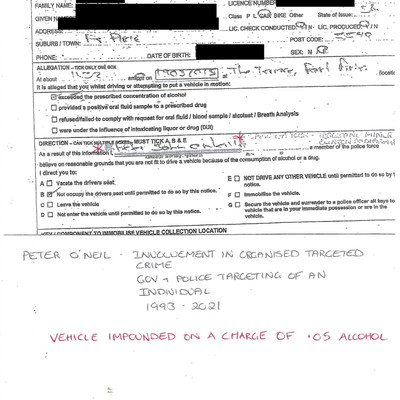 FAMILY NAME:
LICENCE NUMBER
GIVEN NAME
Class P L CAR BIKE Other State of Issue:
ADDRESS:
LIC. CHECK CONDUCTED Y/N LIC. PRODUCED Y/N
SUBURB / TOWN: Pt Pirie POST CODE: 5540
PHONE: DATE OF BIRTH: SEX: M / F
ALLEGATION - TICK ONLY ONE BOX
At about on The Terrace, Port Pirie (locati
It is alleged that you whilst driving or attempting to put a vehicle in motion:
exceeded the prescribed concentration of alcohol
provided a positive oral fluid sample to a prescribed drug
refused/failed to comply with request for oral fluid / blood sample / alcotest / Breath Analysis
were under the influence of intoxicating liquor or drug (DUI)
DIRECTION - CAN TICK MULTIPLE BOXES, MUST TICK A, B & E
As a result of this information I, a member of the police force
believe on reasonable grounds that you are not fit to drive a vehicle because of the consumption of alcohol or a drug.
I direct you to:
A Vacate the drivers seat
B Not occupy the drivers seat until permitted to do so by this notice.
C Leave the vehicle
D Not enter the vehicle until permitted to do so by this notice.
E DO NOT DRIVE ANY OTHER VEHICLE until permitted to do so by t
notice.
F Immobilise the vehicle.
G Secure the vehicle and surrender to a police officer all keys to
vehicle that are in your immediate possession or are in the
vehicle.
KEY / COMPONENT TO IMMOBILISE VEHICLE COLLECTION LOCATION
PETER O'NEIL - INVOLVEMENT IN ORGANISED TARGETED
CRIME
GOV + POLICE TARGETING OF AN
INDIVIDUAL
1993 - 2021
VEHICLE IMPOUNDED ON A CHARGE OF .05 ALCOHOL